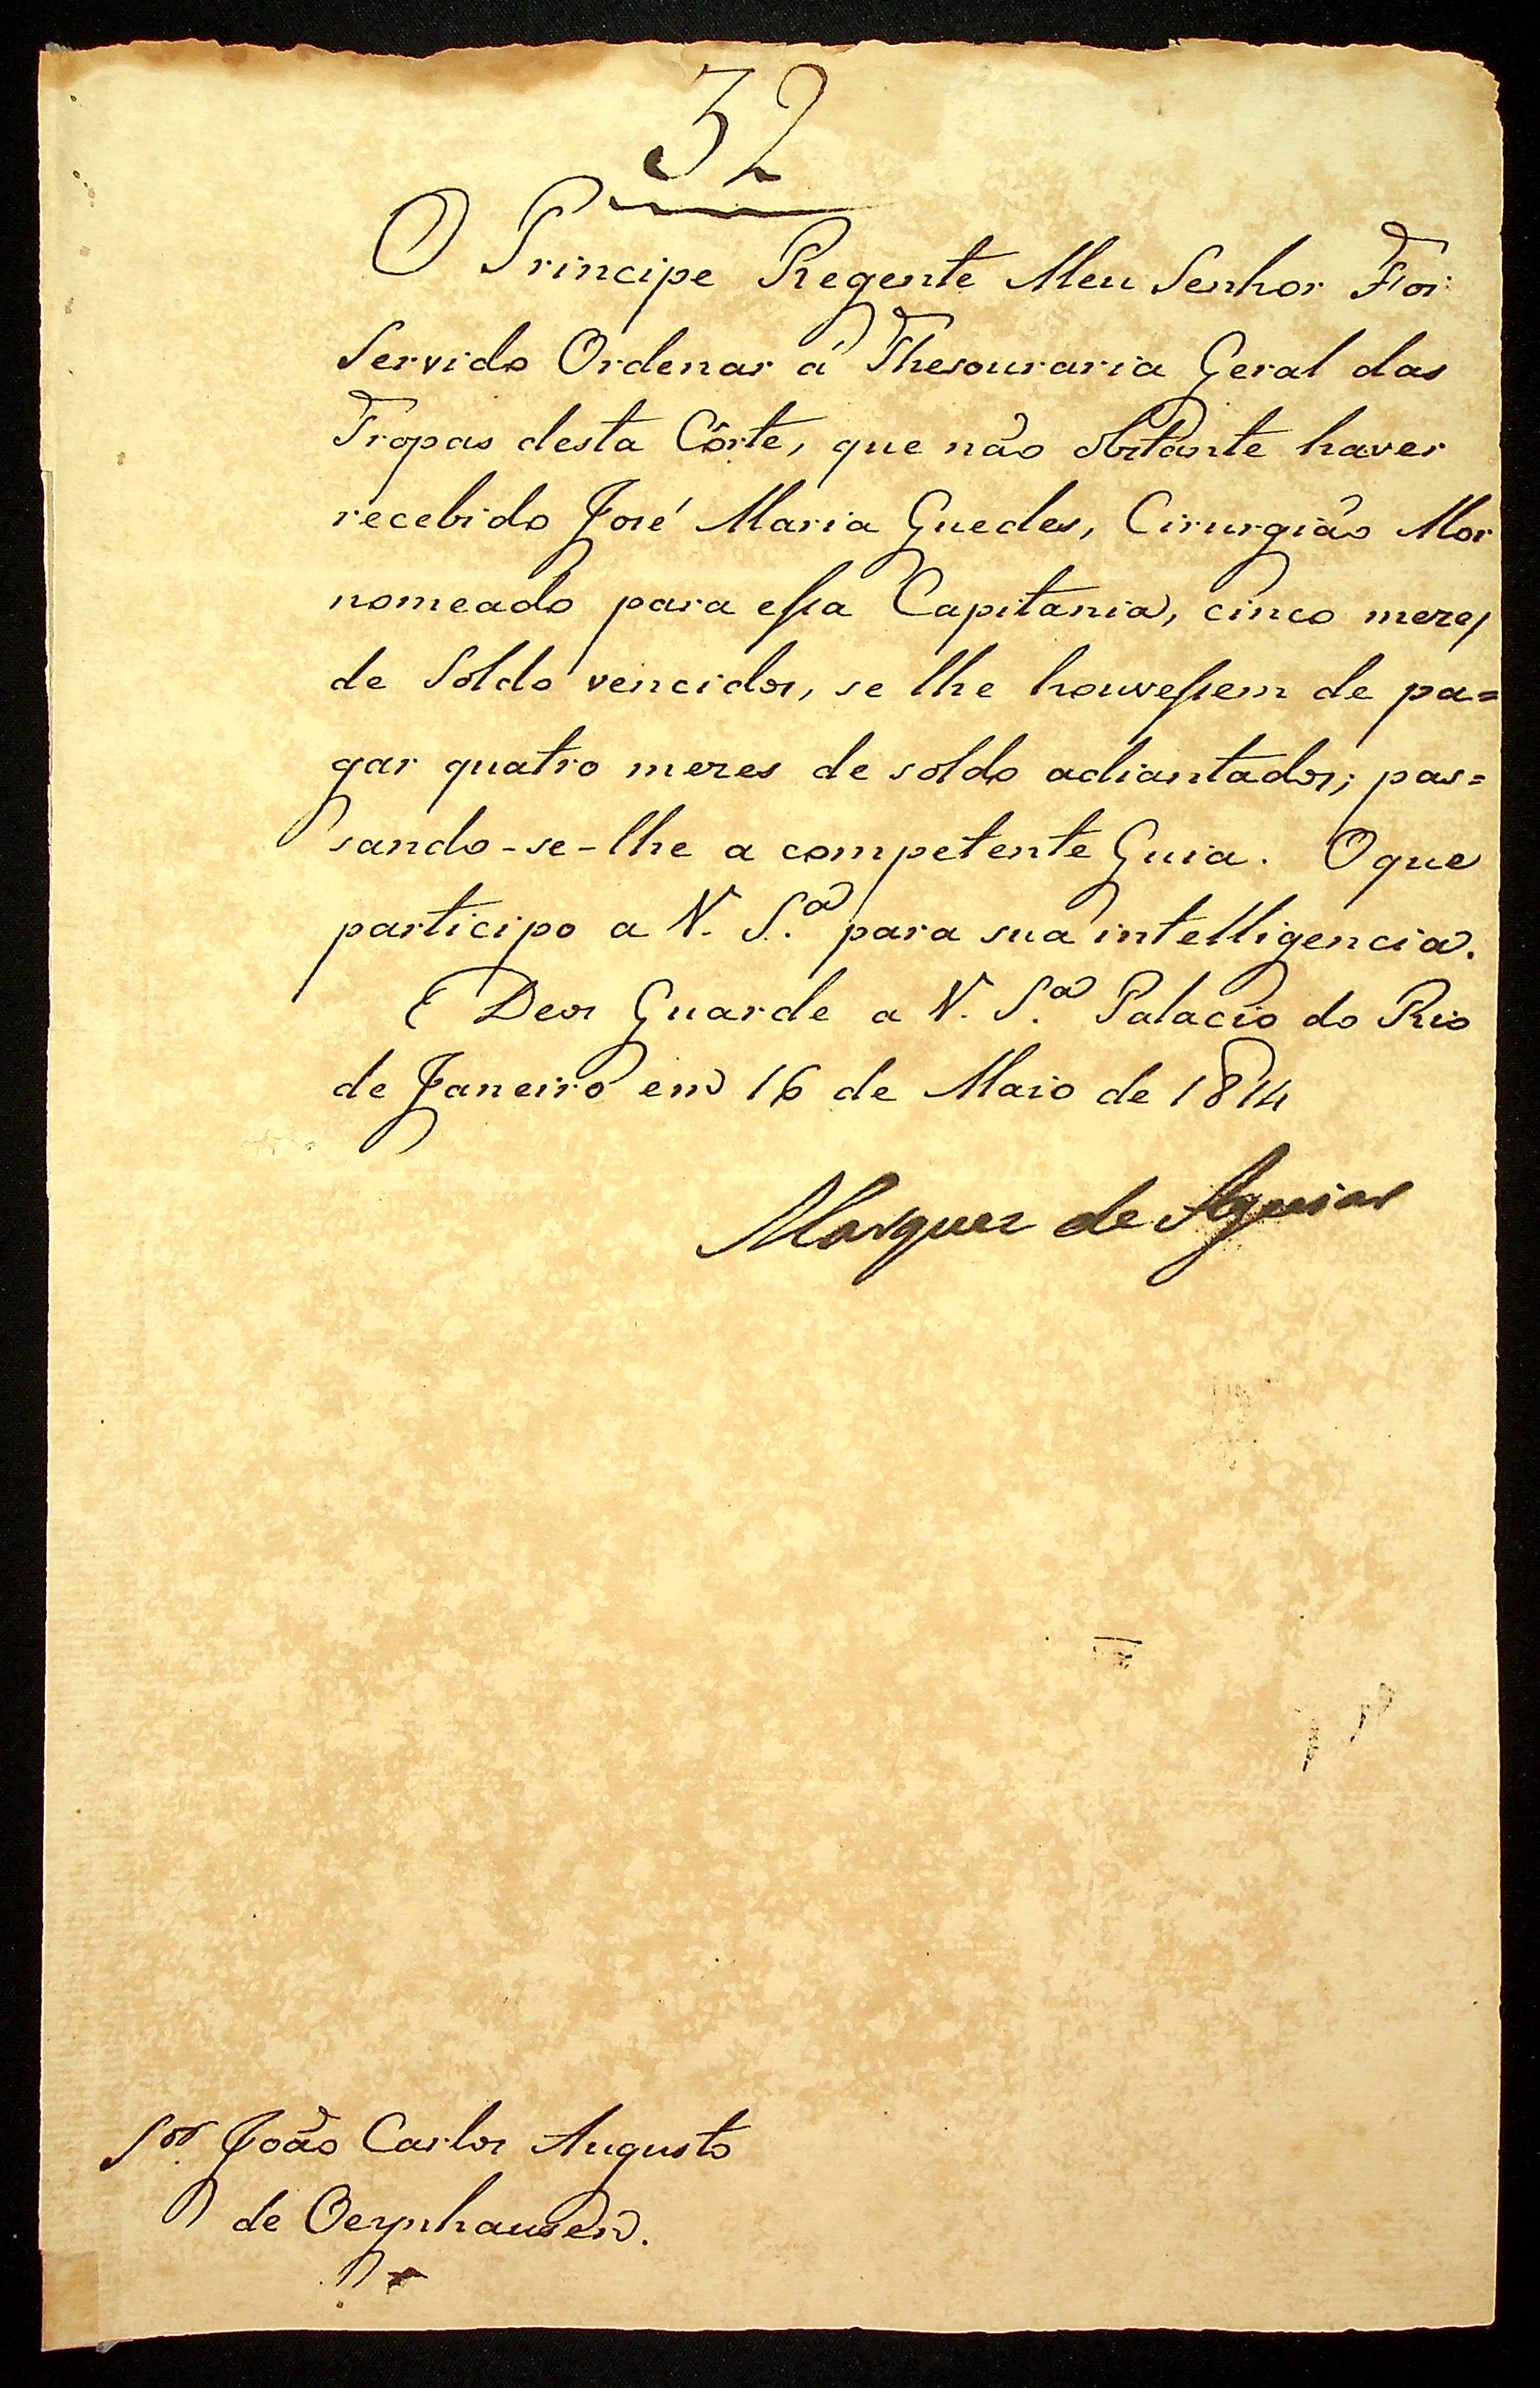 32
O Principe Regente Meu Senhor Foi
Servido Ordenar á Thesouraria Geral das
Tropas desta Côrte, que não obstante haver
recebido José Maria Guedes, Cirurgião Mor
nomeado para essa Capitania, cinco mezes
de Soldo vencidos, se lhe houvessem de pa=
gar quatro mezes de soldo adiantados; pas=
sando-se-lhe a competente Guia. O que
participo a V. S.ª para sua intelligencia.
Deos Guarde a V. S.ª Palacio do Rio
de Janeiro em 16 de Maio de 1814
Marquez de Aguiar
Sor. João Carlos Augusto
de Oeynhausen.